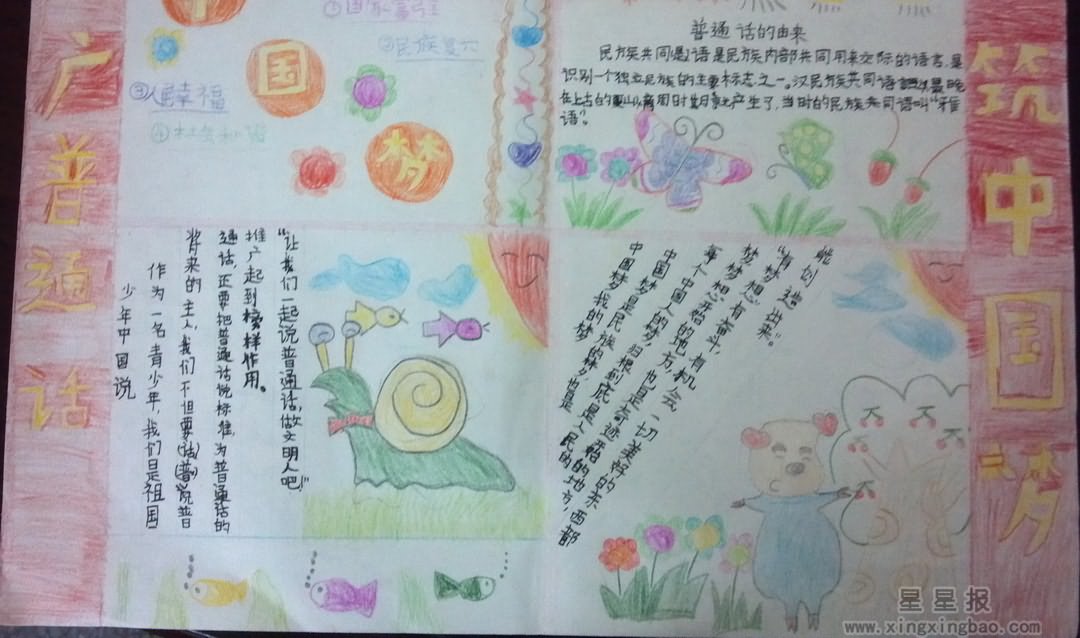 广普通话
筑中国梦
中
国
梦
①国家富强
②民族复兴
③人民幸福
普通话的由来
民族共同语是民族内部共同用来交际的语言,是
识别一个独立民族的主要标志之一。汉民族共同语最晚
在上古的夏商周时期就产生了,当时的民族共同语叫“雅
语”。
少年中国说
作为一名青少年,我们是祖国
将来的主人,我们不但要说普
通话,还要把普通话说标准,为普通话的
推广起到榜样作用。
“让我们一起说普通话,做文明人吧!”
中国梦我的梦
中国梦是民族的梦,也是
每个中国人的梦,归根到底是人民的
梦想开始的地方,也是奇迹开始的地方,
“有梦想,有机会,有奋斗,一切美好的东西都
能创造出来”。
星星报
www.xingxingbao.com